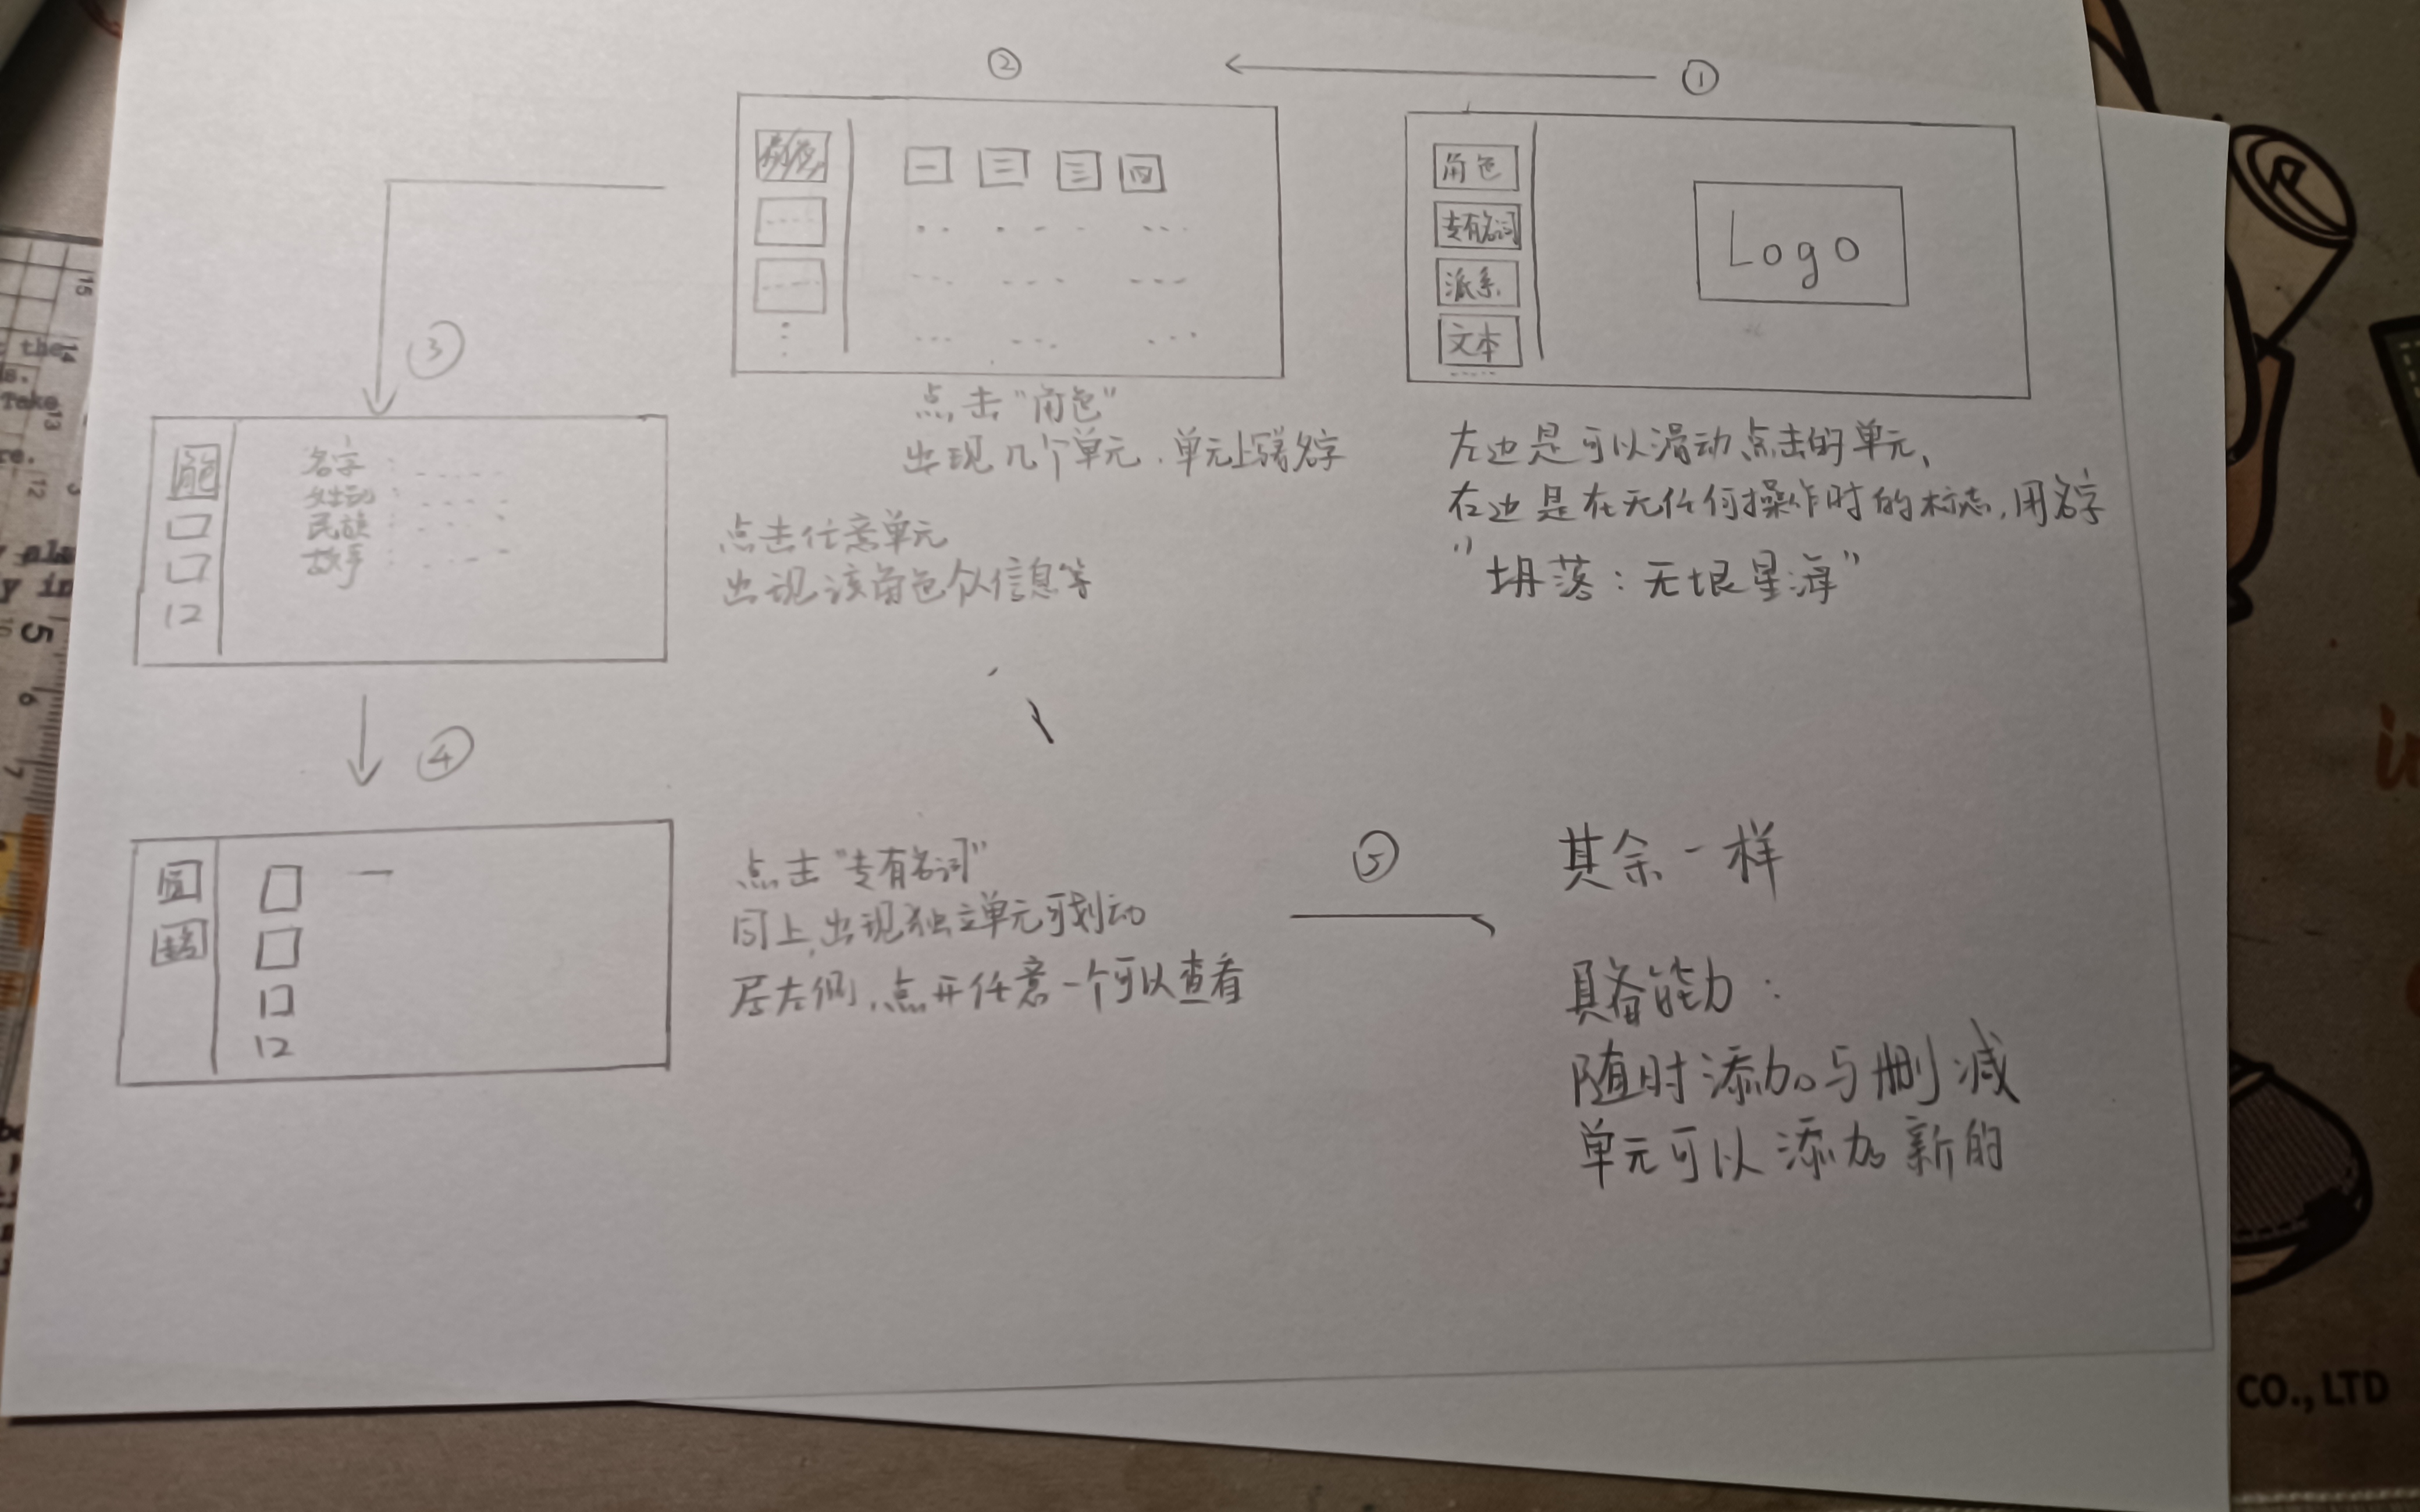 ①
角色
专有名词
派系
文本
Logo
左边是可以滑动点击的单元,
右边是在无任何操作时的标志,用名字
"坍落:无垠星海"
②
角色
一 二 三 四
点击"角色"
出现几个单元.单元上写名字
③
角色
名字:
姓动:
民族:
故事:
点击任意单元
出现该角色个人信息等
④
点击"专有名词"
同上,出现独立单元可划动
居左侧,点开任意一个可以查看
⑤
其余一样
具备能力:
随时添加与删减
单元可以添加新的
15
14
the
s.
Take
13
re.
12
5
6
7
CO., LTD